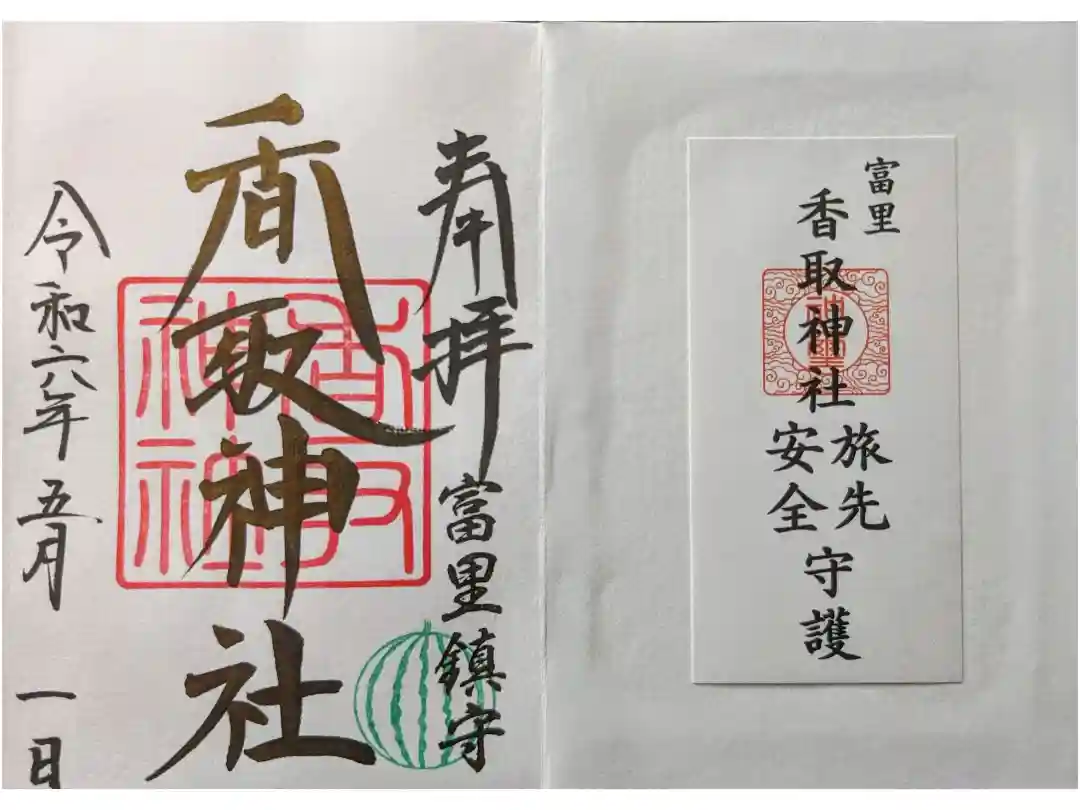 奉拝
富里鎮守
香取神社
香取神社
令和六年五月一日
富里
香取神社
旅先
安全
守護